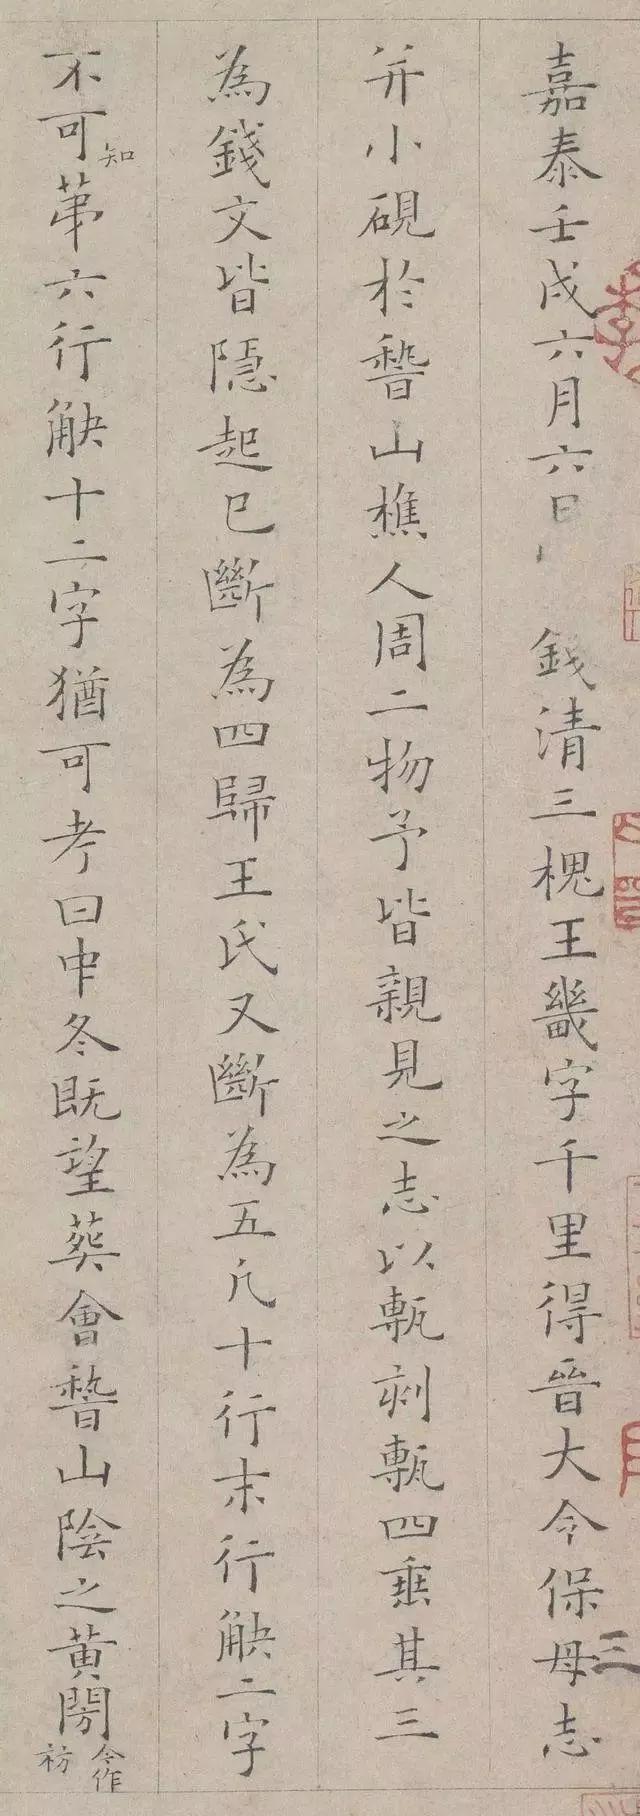 嘉泰壬戌六月六日錢清三槐王畿字千里得晉大令保母志三
并小硯於嵆山樵人周二物予皆親見之志以甎刻甎四垂其三
為錢文皆隱起已斷為四歸王氏又斷為五凡十行末行觖二字
不可知第六行觖十二字猶可考曰中冬既望葬會嵆山陰之黃閍
今作祊